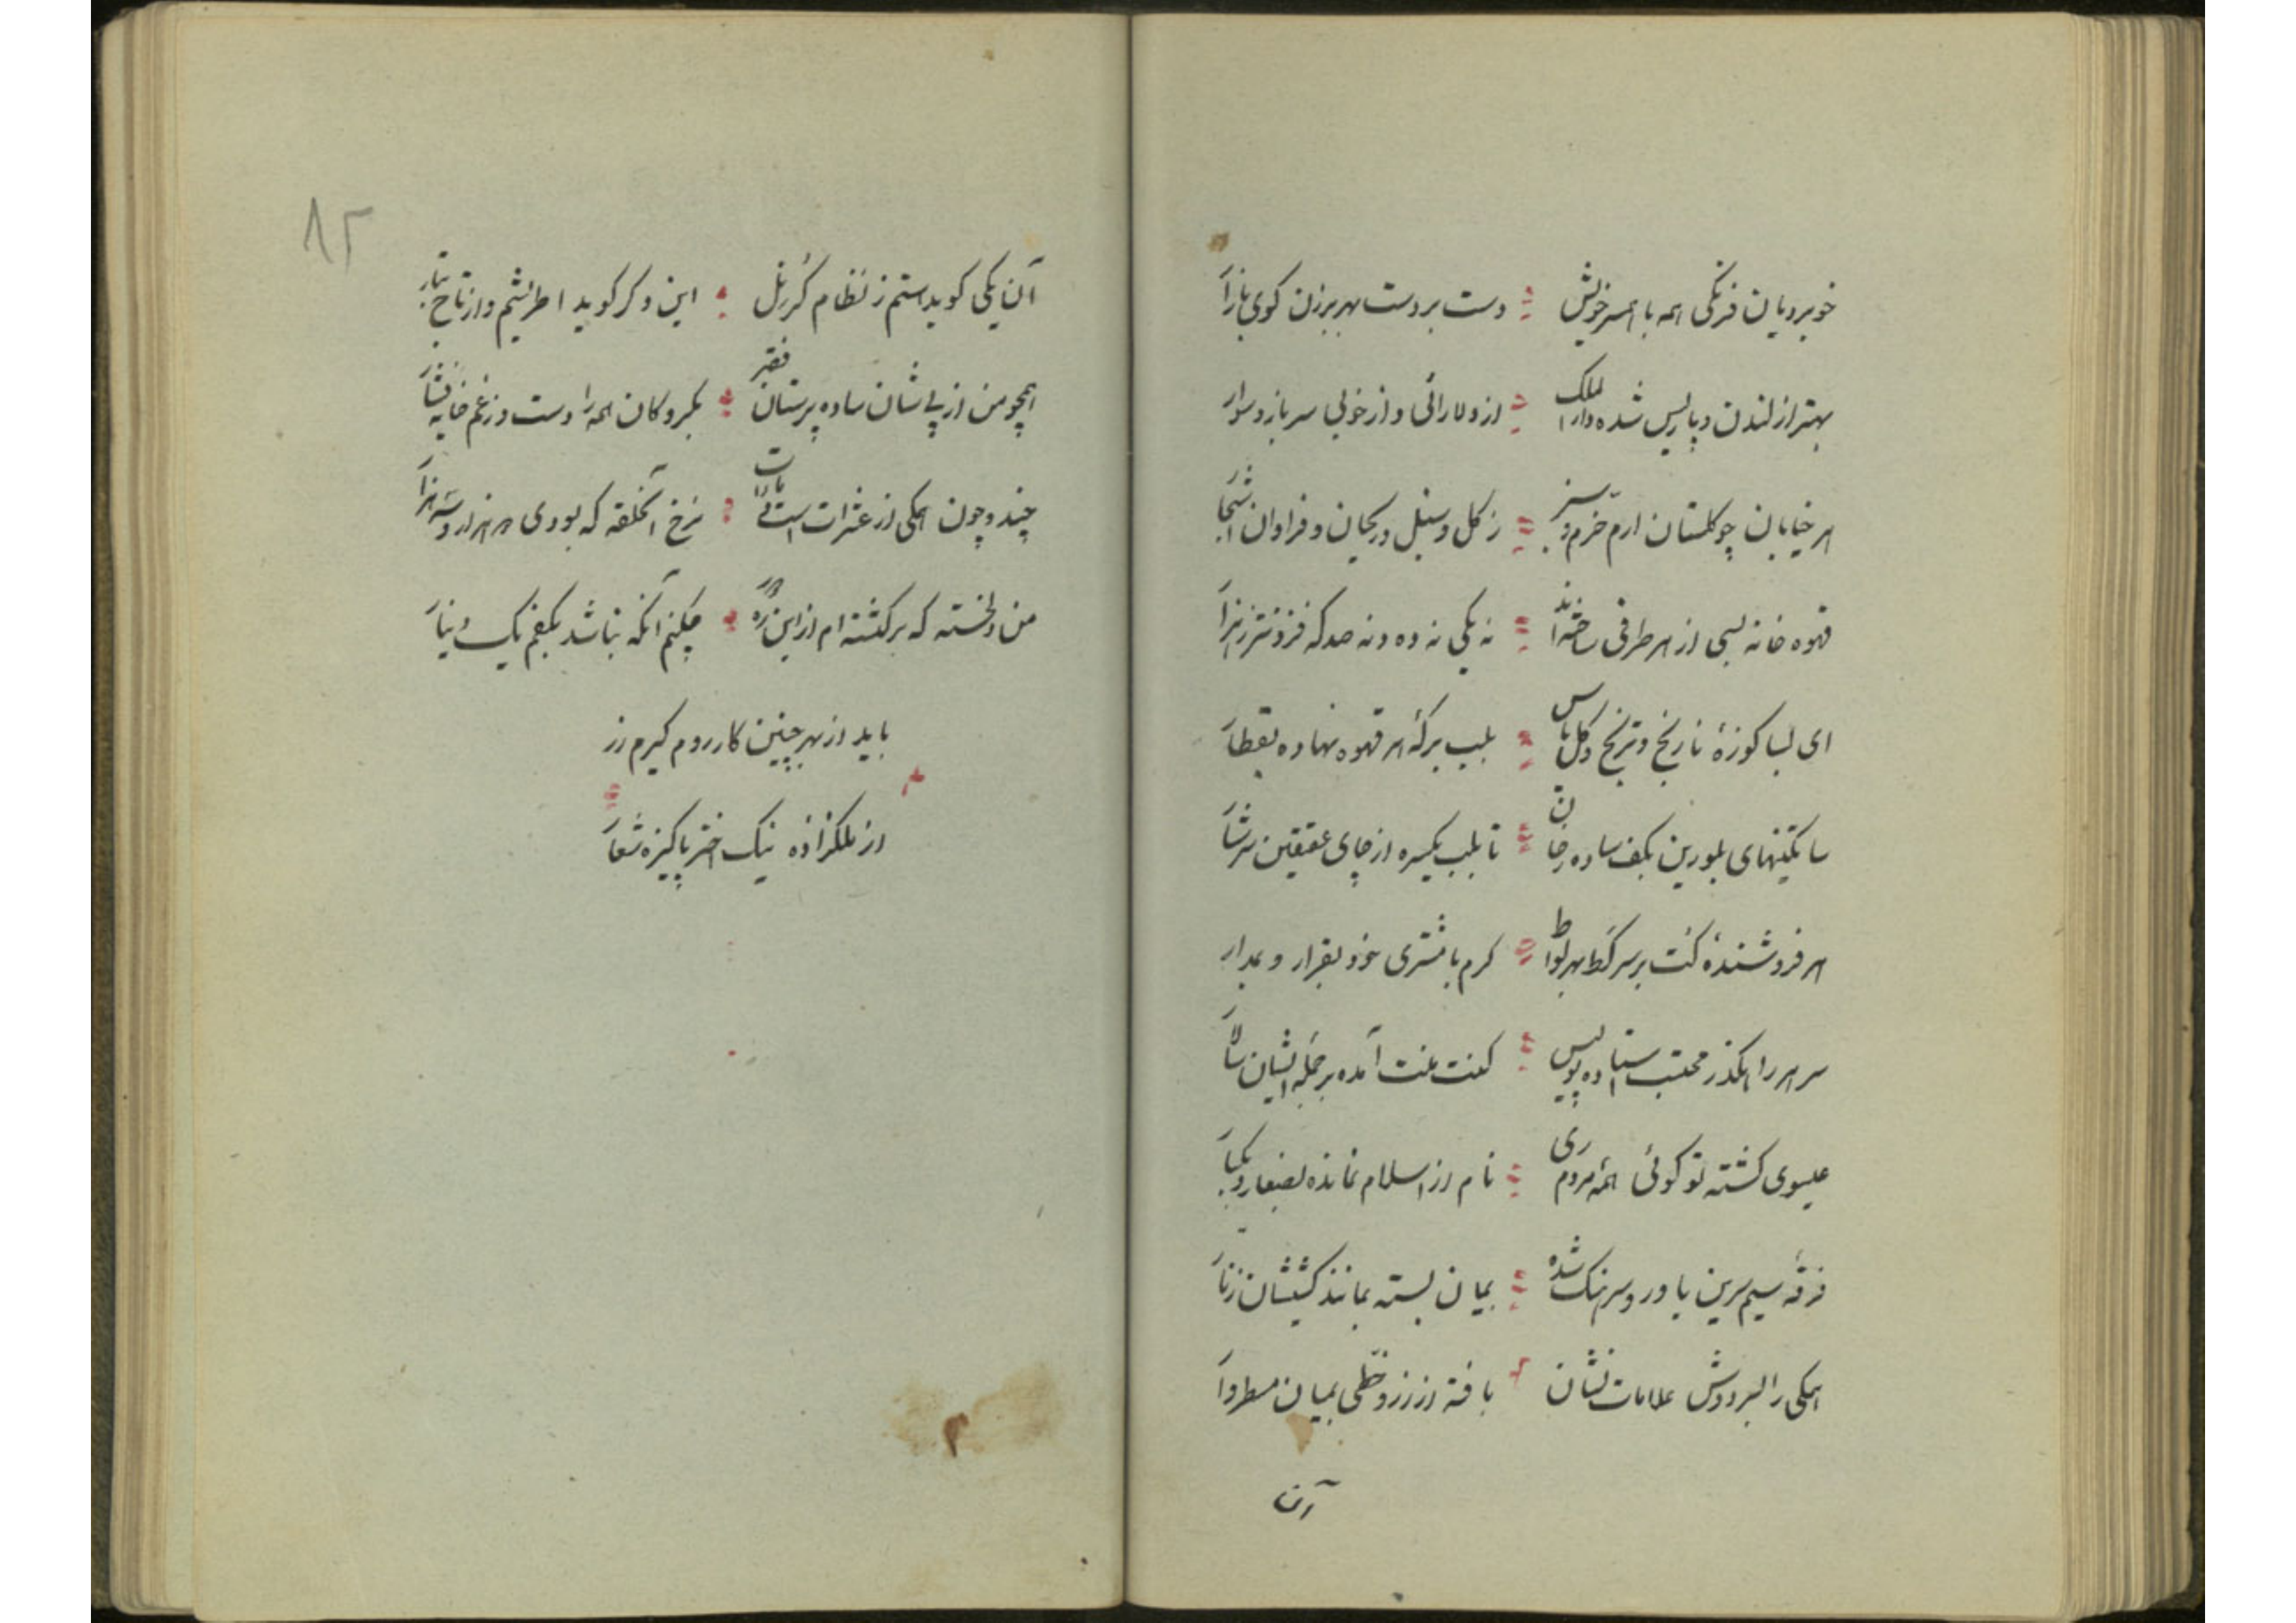 خوبرویان فرنگی همه با همسر خویش دست بر دست بهر برزن کوی بازار
بهتر از لندن و پاریس شده دار الملک از دلارائی و از خوبی سرباز و سوار
هر خیابان چو گلستان ارم خرم و سبز ز گل و سنبل و ریحان و فراوان اشجار
قهوه خانه بسی از هر طرفی ساخته‌اند نه یکی نه ده و نه صد که فزونتر ز هزار
ای بسا کوزهٔ نارنج و ترنج و گل یاس بلب برکهٔ هر قهوه نهاده بقطار
ساتکینهای بلورین بکف ساده رخان تا بلب یکسره از چای عقیقین سرشار
هر فروشندهٔ بر سر بهر لواط گرم با مشتری خود بقرار و بمدار
سر هر راهگذر محتسب استاده پولیس کنت آمده بر جمله ایشان سالار
عیسوی گشته تو گوئی همه مردم ری نام از اسلام نمانده بصغار و بکبار
فرقهٔ سیم سرین یاور و سرهنگ شده بمیان بسته بمانند کشیشان زنار
همگی را بسر و دوش علامات نشان بافته از زر و خطی بمیان مسطر وار
آن
۸۲
آن یکی گوید هستم ز نظام این دگر گوید اطریشم و از تاتار
همچو من از پی شان ساده پرستان فقیر بکمر و کان همه را دست و ز غم خایه فشار
چند و چون همگی از عثرات است نرخ آنحلقه که بودی هزار و سه هزار
من دلخسته که برگشته‌ام از این ره دور چکنم آنکه نباشد بکفم یک دینار
باید از بهر چنین کار روم گیرم زر
از ملکزاده نیک اختر پاکیزه شعار